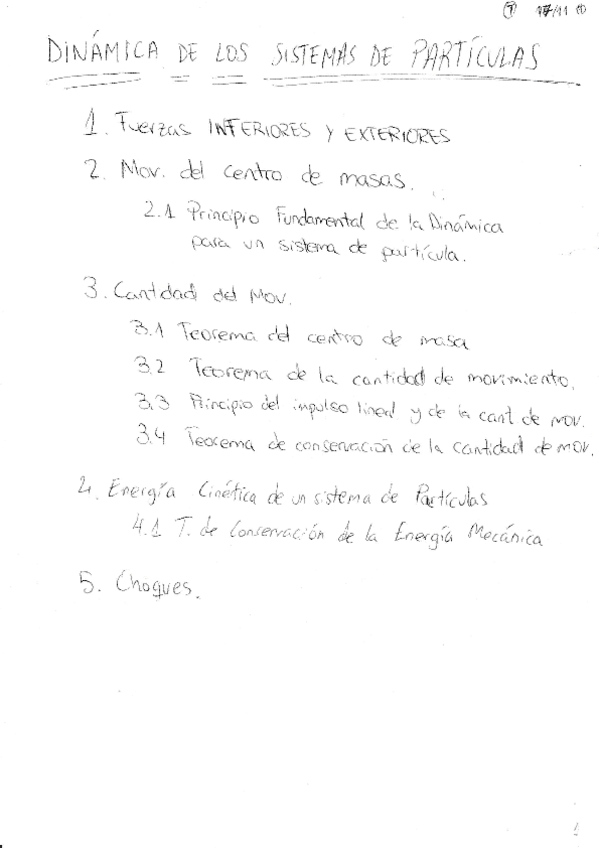 7 17/11 1
DINÁMICA DE LOS SISTEMAS DE PARTÍCULAS
1. Fuerzas INTERIORES Y EXTERIORES
2. Mov. del centro de masas.
2.1 Principio Fundamental de la Dinámica
para un sistema de partícula.
3. Cantidad del Mov.
3.1 Teorema del centro de masa
3.2 Teorema de la cantidad de movimiento.
3.3 Principio del impulso lineal y de la cant de mov.
3.4 Teorema de conservación de la cantidad de mov.
4. Energía Cinética de un sistema de Partículas
4.1 T. de Conservación de la Energía Mecánica
5. Choques.
1